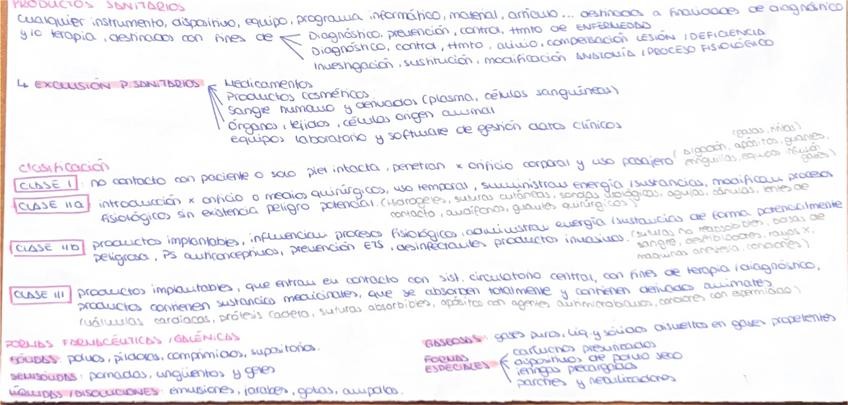 PRODUCTOS SANITARIOS
Cualquier instrumento, dispositivo, equipo, programa informático, material, artículo... destinados a finalidades de diagnóstico
y/o terapia, destinados con fines de
Diagnóstico, prevención, control, ttmto de ENFERMEDAD
Diagnóstico, control, ttmto, alivio, compensación LESIÓN / DEFICIENCIA
Investigación, sustitución, modificación ANATOMÍA / PROCESO FISIOLÓGICO
↳ EXCLUSIÓN P. SANITARIOS
Medicamentos
Productos cosméticos
Sangre humano y derivados (plasma, células sanguíneas)
Órganos, tejidos, células origen animal
equipos laboratorio y software de gestión datos clínicos
Clasificación
CLASE I no contacto con paciente o solo piel intacta, penetran x orificio corporal y uso pasajero (algodón, apósitos, guantes,
CLASE IIa introducción x orificio o medios quirúrgicos, uso temporal, suministran energía/sustancias, modifican procesos
fisiológicos sin existencia peligro potencial (hidrogeles, suturas cutáneas, sondas urológicas, agujas, cánulas, lentes de
contacto, audífonos, guantes quirúrgicos)
CLASE IIb productos implantables, influencian procesos fisiológicos, administrar energía/sustancias de forma potencialmente
peligrosa, PS anticonceptivos, prevención ETS, desinfectantes productos invasivos. (suturas no reabsorbibles, bolsas de
sangre, desfibriladores, rayos x,
máquinas anestesia, condones)
CLASE III productos implantables, que entran en contacto con sist. circulatorio central, con fines de terapia/diagnóstico,
productos contienen sustancias medicinales, que se absorben totalmente y contienen derivados animales
(válvulas cardíacas, prótesis cadera, suturas absorbibles, apósitos con agentes antimicrobianos, condones con espermicida)
FORMAS FARMACÉUTICAS / GALÉNICAS
SÓLIDAS: polvos, píldoras, comprimidos, supositorios.
SEMISÓLIDAS: pomadas, ungüentos y geles
LÍQUIDAS / DISOLUCIONES: emulsiones, jarabes, gotas, ampollas.
GASEOSAS: gases puros, líq. y sólidos disueltos en gases propelentes
FORMAS ESPECIALES
cartuchos presurizados
dispositivos de polvo seco
jeringas precargadas
parches y nebulizadores